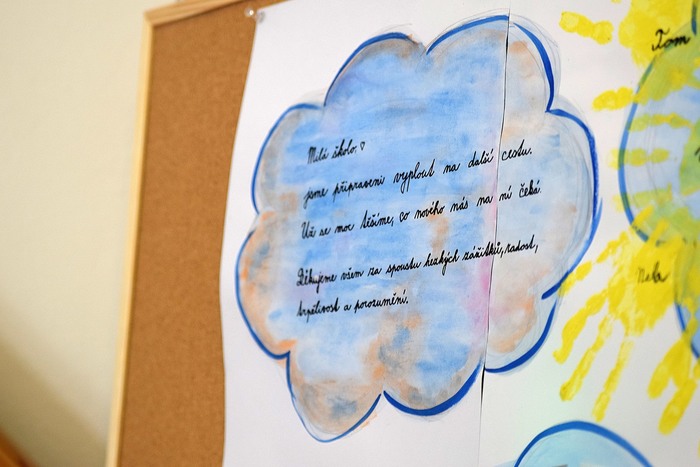 Milá školo.♡
jsme připraveni vyplout na další cestu.
Už se moc těšíme, co nového nás na ní čeká.
Děkujeme všem za spoustu hezkých zážitků, radost,
trpělivost a porozumění.
Tom
Nela